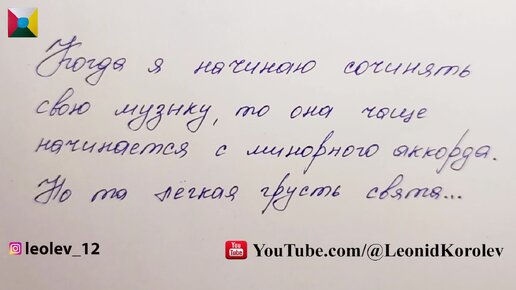 Когда я начинаю сочинять
свою музыку, то она чаще
начинается с минорного аккорда.
Но та лёгкая грусть свята...
leolev_12
YouTube.com/@LeonidKorolev